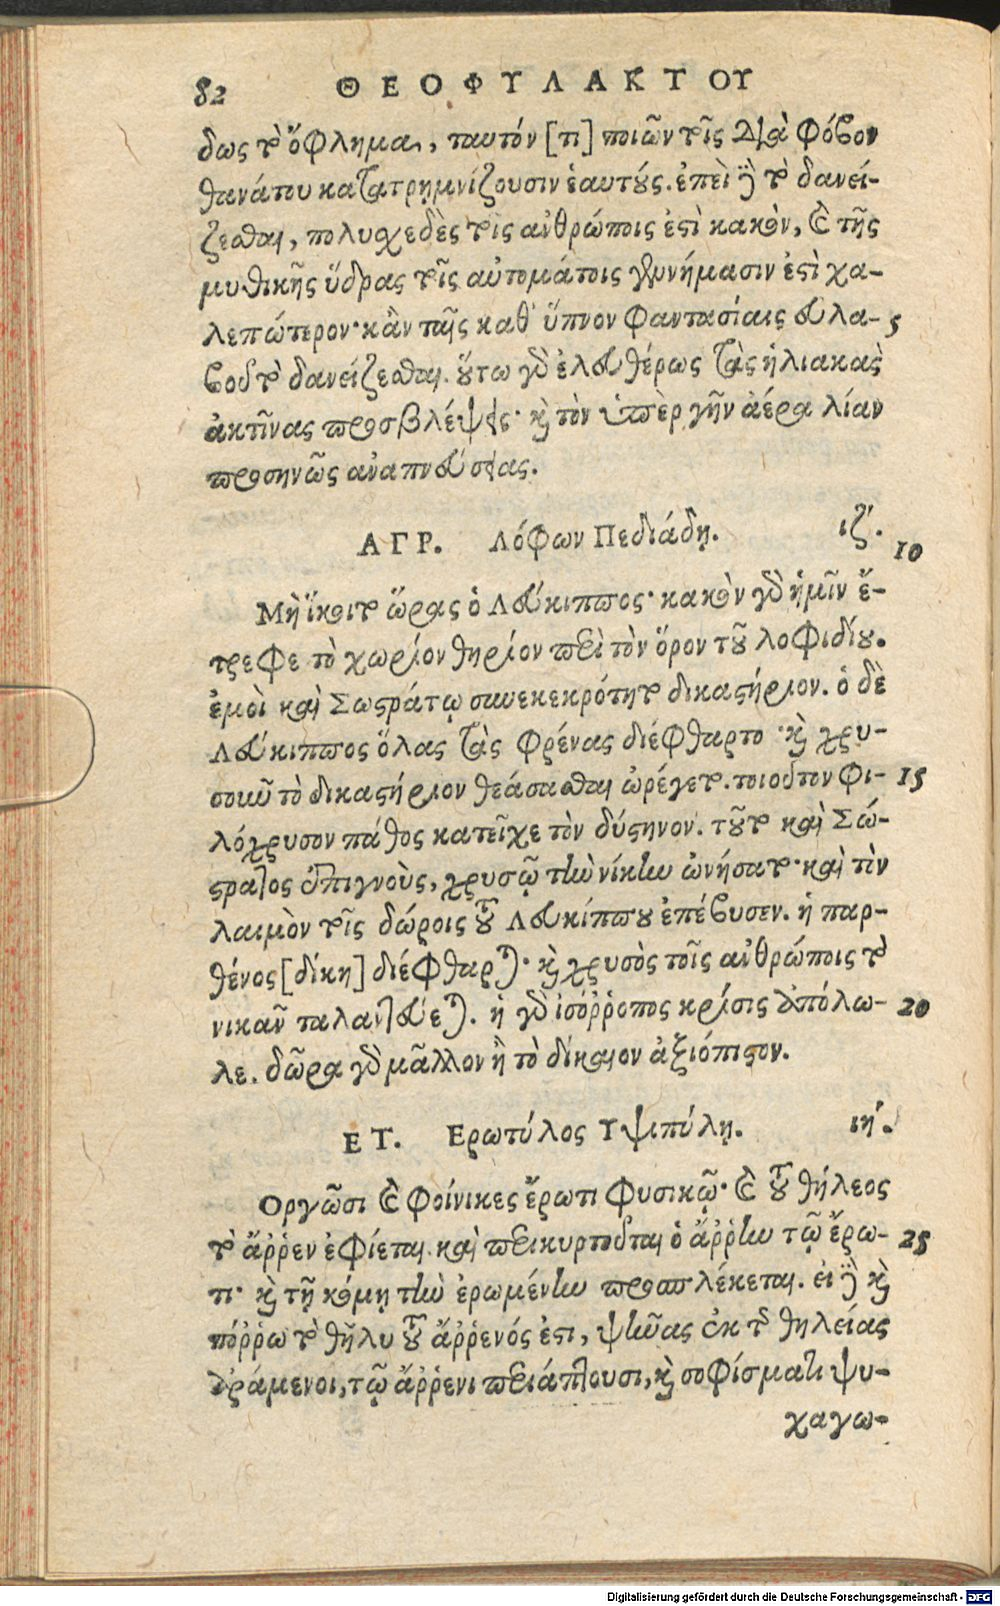 82 ΘΕΟΦΥΛΑΚΤΟΥ
δως τὸ ὄφλημα, ταυτόν [τι] ποιῶν τοῖς διὰ φόβον
θανάτου κατακρημνίζουσιν ἑαυτούς. ἐπεὶ γὰρ τὸ δανεί-
ζεσθαι, πολυχεδὲς τοῖς ἀνθρώποις ἐστὶ κακὸν, καὶ τῆς
μυθικῆς ὕδρας τοῖς αὐτομάτοις γεννήμασιν ἐστὶ χα-
λεπώτερον· κἂν ταῖς καθ' ὕπνον φαντασίαις εὐλα- 5
βοῦ τὸ δανείζεσθαι. οὕτω γὰρ ἐλευθέρως τὰς ἡλιακὰς
ἀκτῖνας προσβλέψεις· καὶ τὸν ὑπὲρ γῆν ἀέρα λίαν
προσηνῶς ἀναπνεύσειας.
ΑΓΡ. Λόφων Πεδιάδῃ. ιζ΄. 10
Μὴ ἵκοιτο ὥρας ὁ Λεύκιππος· κακὸν γὰρ ἡμῖν ἔ-
τρεφε τὸ χωρίον θηρίον περὶ τὸν ὅρον τοῦ λοφιδίου.
ἐμοὶ καὶ Σωστράτῳ συνεκεκρότητο δικαστήριον. ὁ δὲ
Λεύκιππος ὅλας τὰς φρένας διέφθαρτο· καὶ χρυ-
σοῦν τὸ δικαστήριον θεάσασθαι ὠρέγετο. τοιοῦτον φι- 15
λόχρυσον πάθος κατεῖχε τὸν δύστηνον. τοῦτο καὶ Σώ-
στρατος ἐπιγνοὺς, χρυσῷ τὴν νίκην ὠνήσατο· καὶ τὸν
λαιμὸν τοῖς δώροις τοῦ Λευκίππου ἐπέβυσεν. ἡ παρ-
θένος [δίκη] διέφθαρται· καὶ χρυσὸς τοῖς ἀνθρώποις τὸ
νικᾶν ταλαντεύεται. ἡ γὰρ ἰσόῤῥοπος κρίσις ἀπόλω- 20
λε. δῶρα γὰρ μᾶλλον ἢ τὸ δίκαιον ἀξιόπιστον.
ΕΤ. Ερωτύλος Υψιπύλῃ. ιη΄.
Οργῶσι καὶ φοίνικες ἔρωτι φυσικῷ· καὶ τοῦ θήλεος
τὸ ἄῤῥεν ἐφίεται. καὶ περικυρτοῦται ὁ ἄῤῥην τῷ ἔρω- 25
τι· καὶ τῇ κόμῃ τὴν ἐρωμένην προσπλέκεται. εἰ γὰρ καὶ
πόῤῥω τὸ θῆλυ τοῦ ἄῤῥενός ἐστι, ψῆνας ἐκ τῆς θηλείας
δράμενοι, τῷ ἄῤῥενι περιάπτουσι, καὶ σοφίσματι ψυ-
χαγω-
Digitalisierung gefördert durch die Deutsche Forschungsgemeinschaft - DFG